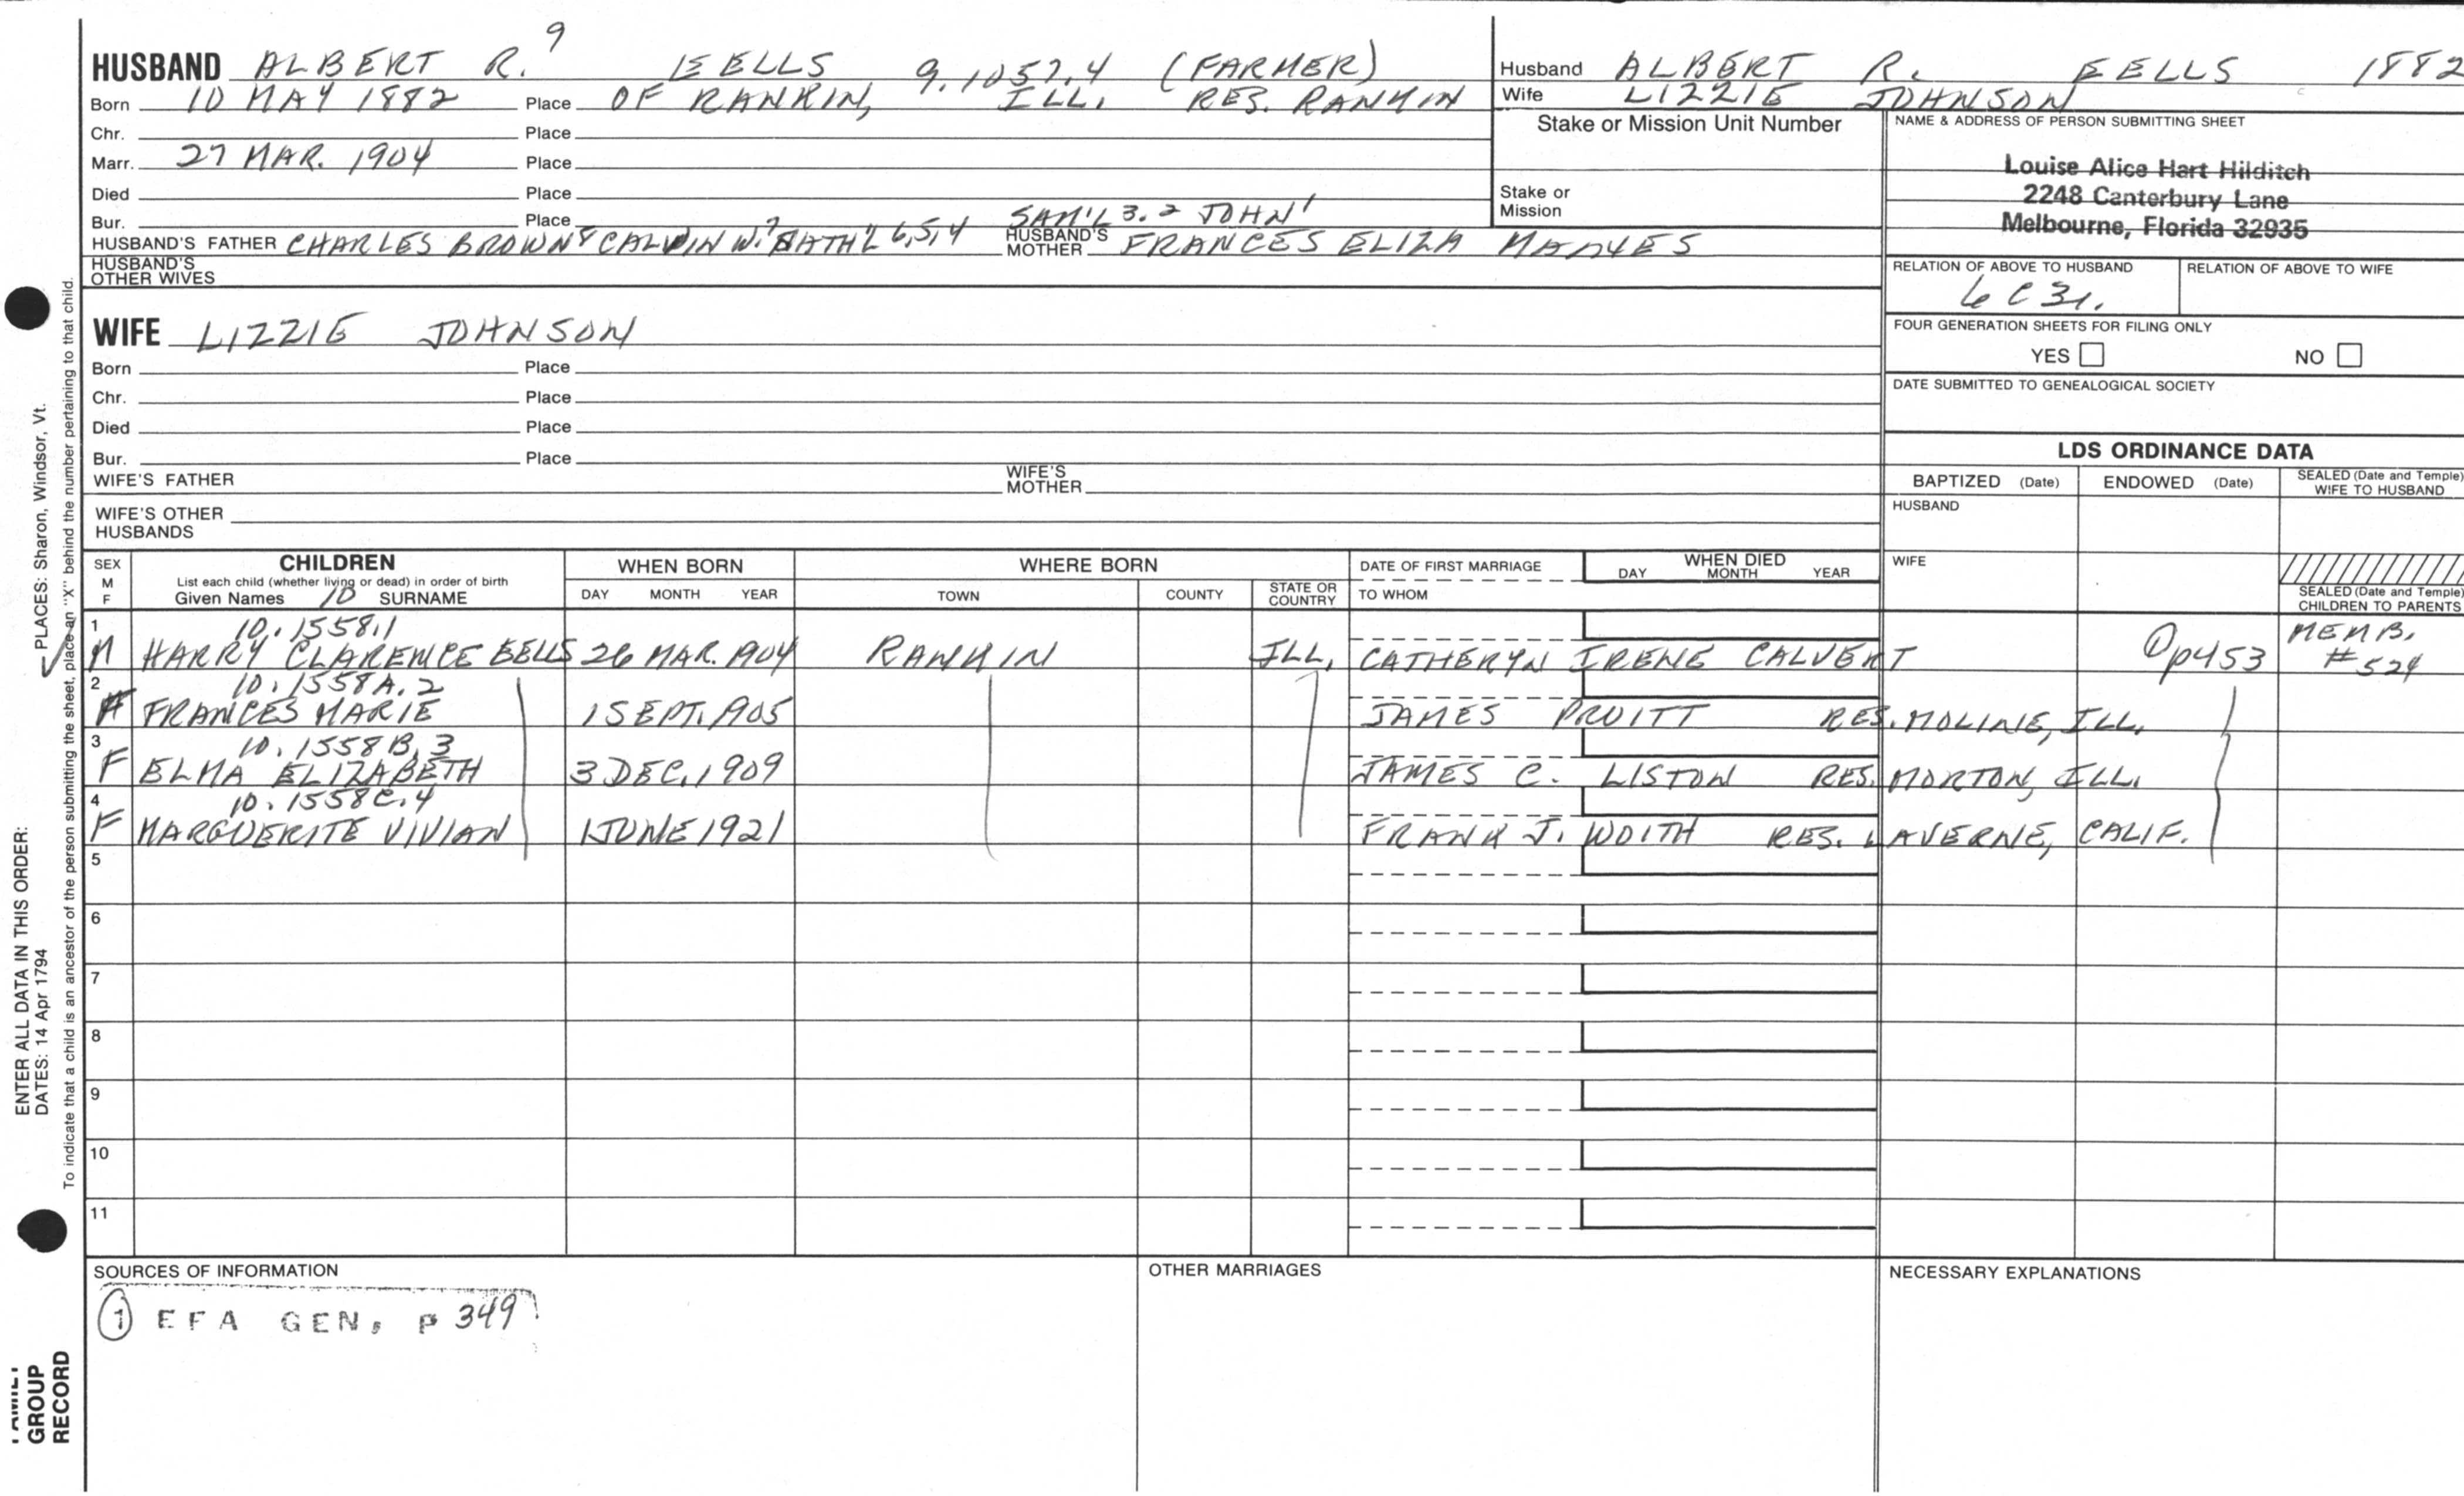 HUSBAND ALBERT R. 9 EELLS 9.1057.4 (FARMER)
Born 10 MAY 1882 Place OF RANKIN, ILL. RES. RANKIN
Chr. Place
Marr. 27 MAR. 1904 Place
Died Place
Bur. Place SAM'L 3.2 JOHN 1
HUSBAND'S FATHER CHARLES BROWN 8 CALVIN W. 7 NATH'L 6,5,4 HUSBAND'S MOTHER FRANCES ELIZA
HUSBAND'S OTHER WIVES
Husband ALBERT R. EELLS 1882
Wife LIZZIE JOHNSON
Stake or Mission Unit Number
Stake or Mission
NAME & ADDRESS OF PERSON SUBMITTING SHEET
Louise Alice Hart Hilditch
2248 Canterbury Lane
Melbourne, Florida 32935
RELATION OF ABOVE TO HUSBAND RELATION OF ABOVE TO WIFE
6C3r.
FOUR GENERATION SHEETS FOR FILING ONLY
YES NO
DATE SUBMITTED TO GENEALOGICAL SOCIETY
WIFE LIZZIE JOHNSON
Born Place
Chr. Place
Died Place
Bur. Place
WIFE'S FATHER WIFE'S MOTHER
WIFE'S OTHER HUSBANDS
LDS ORDINANCE DATA
BAPTIZED (Date) ENDOWED (Date) SEALED (Date and Temple) WIFE TO HUSBAND
HUSBAND
WIFE
SEALED (Date and Temple) CHILDREN TO PARENTS
SEX M F
CHILDREN
List each child (whether living or dead) in order of birth
Given Names 10 SURNAME
WHEN BORN
DAY MONTH YEAR
WHERE BORN
TOWN COUNTY STATE OR COUNTRY
DATE OF FIRST MARRIAGE
TO WHOM
WHEN DIED
DAY MONTH YEAR
1 10.1558.1
M HARRY CLARENCE EELLS 26 MAR. 1904 RANKIN ILL. CATHERYN IRENE CALVERT 1 p453 MEMB. #524
2 10.1558A.2
F FRANCES MARIE 1 SEPT. 1905 JAMES PRUITT RES. MOLINE, ILL.
3 10.1558B.3
F ELMA ELIZABETH 3 DEC. 1909 JAMES C. LISTON RES. MORTON, ILL.
4 10.1558C.4
F MARGUERITE VIVIAN 1 JUNE 1921 FRANK J. WOITH RES. LAVERNE, CALIF.
5
6
7
8
9
10
11
SOURCES OF INFORMATION
1 EFA GEN, p 349
OTHER MARRIAGES
NECESSARY EXPLANATIONS
ENTER ALL DATA IN THIS ORDER:
DATES: 14 Apr 1794 PLACES: Sharon, Windsor, Vt.
To indicate that a child is an ancestor of the person submitting the sheet, place an "X" behind the number pertaining to that child.
FAMILY
GROUP
RECORD